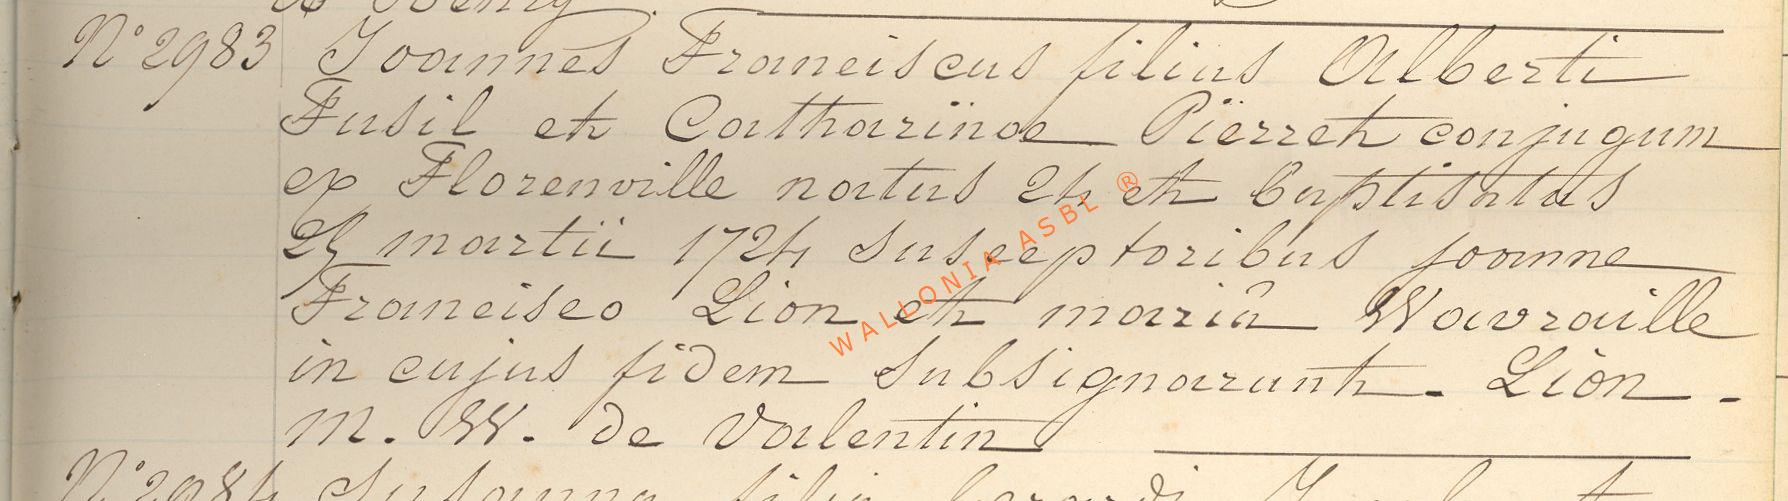 N° 2983 Joannes Franciscus filius Alberti
Fusil et Catharinae Pierret conjugum
ex Florenville natus 24 et baptisatus
25 martii 1724 susceptoribus joanne
Francisco Lion et mariâ Wavraille
in cujus fidem subsignarunt. Lion.
m. W. de Valentin
N° 2984 Susanna filia
WALLONIA ASBL ®